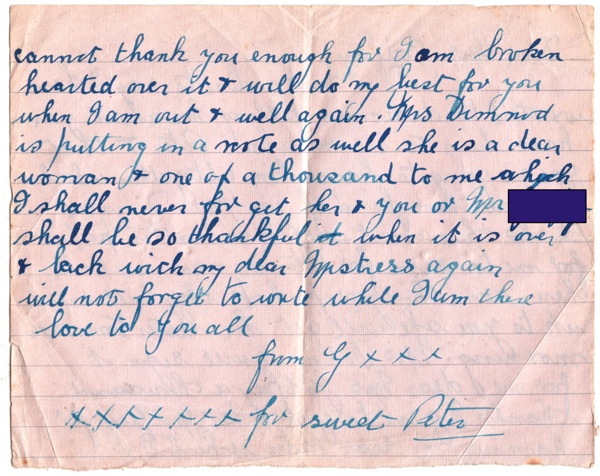 cannot thank you enough for I am broken
hearted over it & will do my best for you
when I am out & well again. Mrs Dimnod
is putting in a note as well she is a dear
woman & one of a thousand to me which
I shall never for get her & you or Mr
shall be so thankful it when it is over
& back with my dear Mistress again
will not forget to write while I am there
love to you all
from G x x x
x x x x x x x for sweet Peter